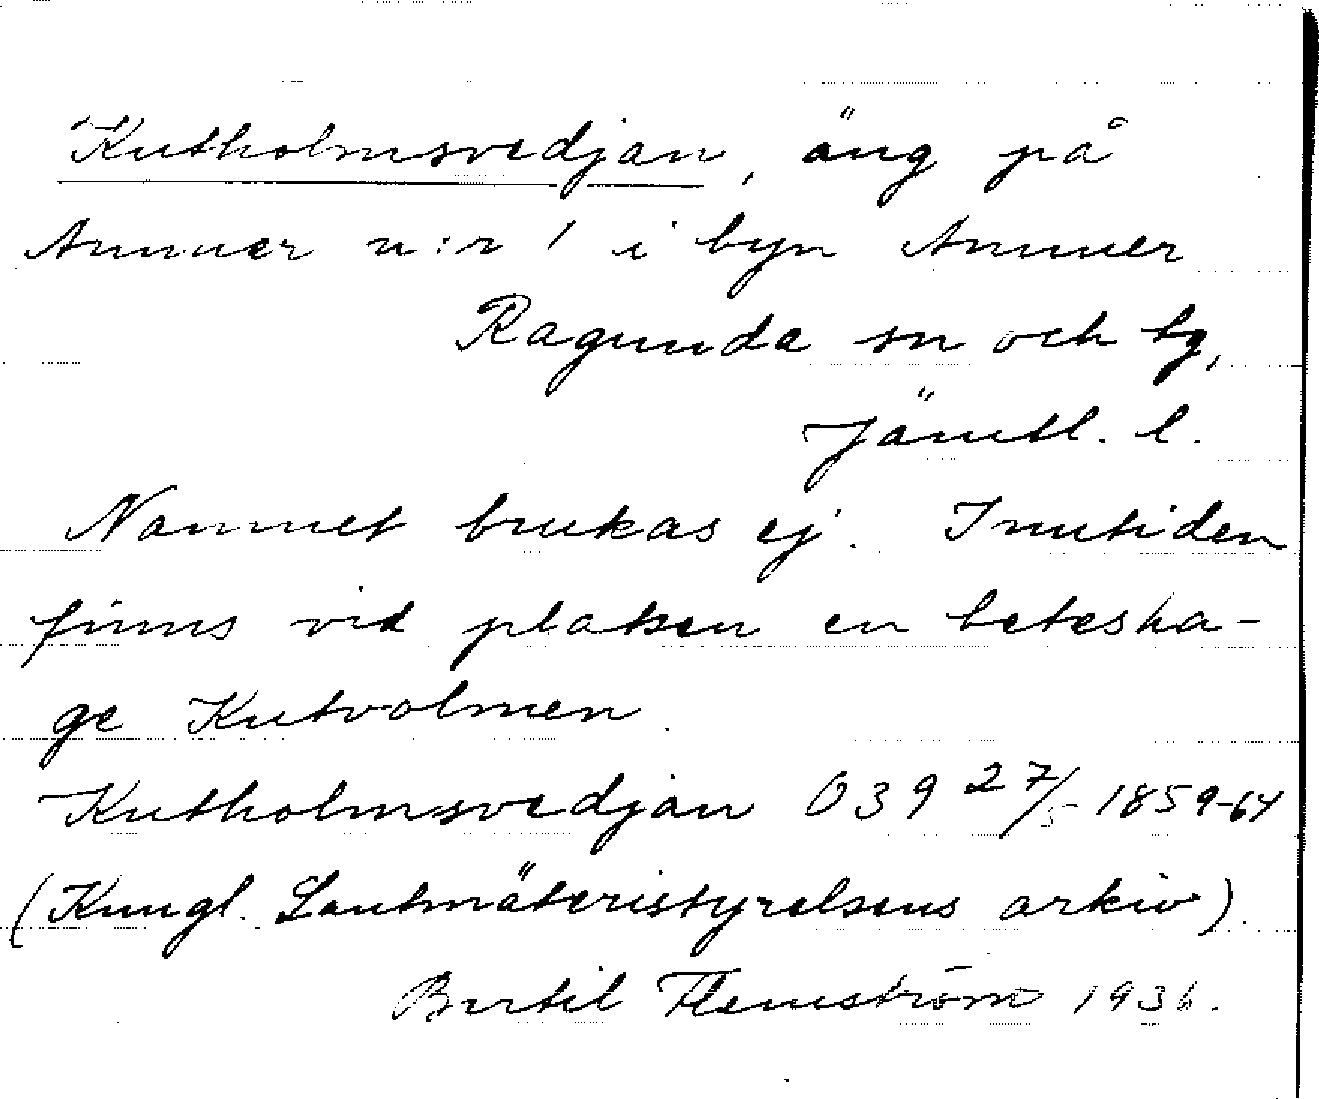 Kutholmsvedjan, äng på
Ammer n:r 1 i byn Ammer
Ragunda sn och tg,
Jämtl. l.
Namnet brukas ej. Inutiden
finns vid platsen en betesha-
ge Kutvolmen.
Kutholmsvedjan O39 27/5 1859-64
(Kungl. Lantmäteristyrelsens arkiv).
Bertil Flemström 1936.